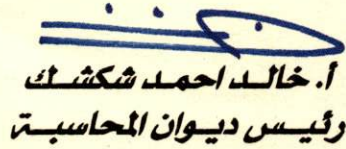 أ. خالد احمد شكشك
رئيس ديوان المحاسبة